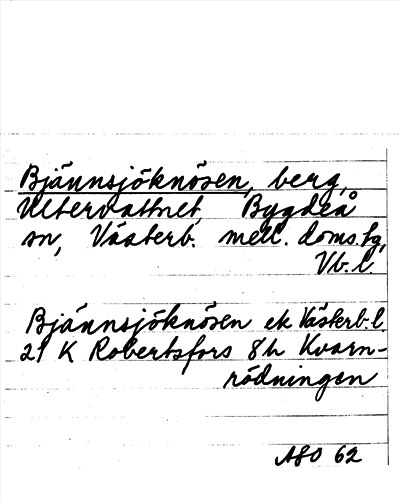 Bjännsjöknösen, berg,
Ultervattnet, Bygdeå
sn, Västerb. mell. doms.tg,
Vb. l.
Bjännsjöknösen ek Västerb. l
21 K Robertsfors 8h Kvarn-
rödningen
62